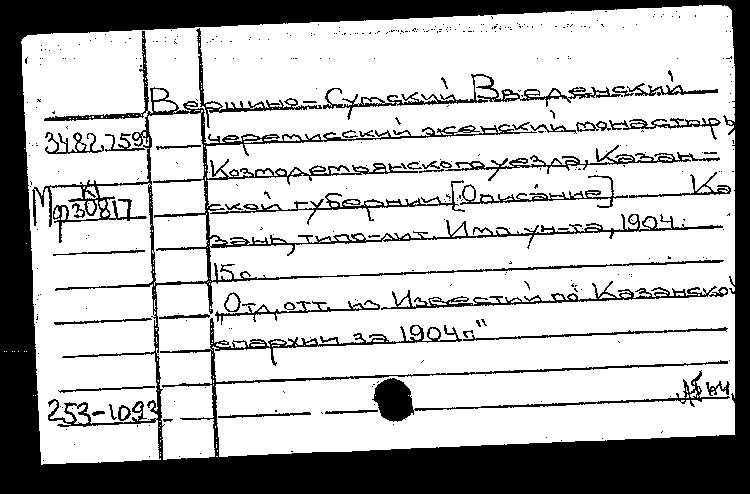 Вершино-Сумский Введенский
34.82.7599 черемисский женский монастырь
Козмодемьянского уезда, Казан-
К1
Мф30817 ской губернии. [Описание] Ка
зань, типо-лит. Имп. ун-та, 1904.
15 с.
„Отд. отт. из Известий по Казанской
епархии за 1904 г."
253-1093